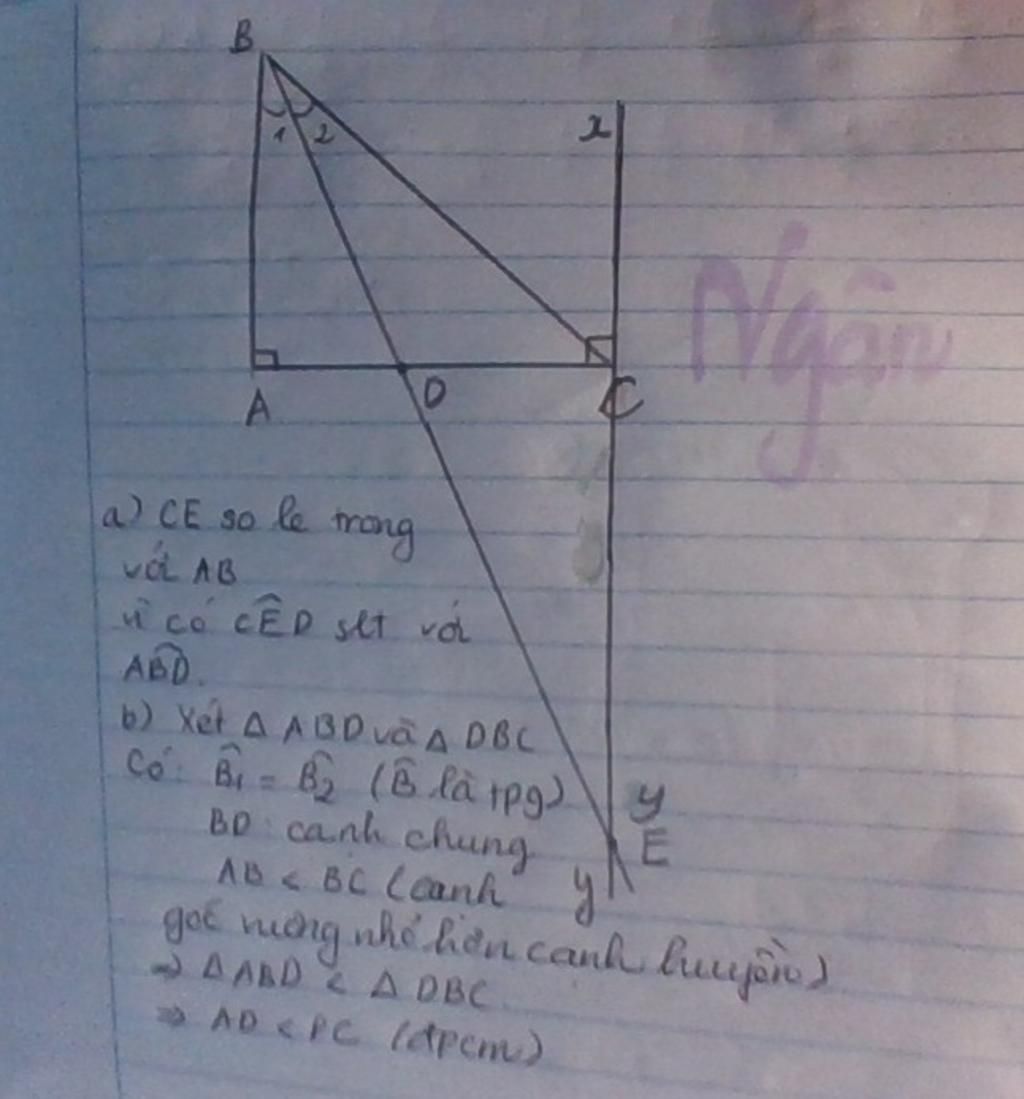 B
1 2
x
Ngân
A
D
C
a) CE so le trong
với AB
vì có CÊD slt với
ABD.
b) Xét Δ ABD và Δ DBC
Có: B̂1 = B̂2 (B̂ là tpg)
BD: cạnh chung
AB < BC (cạnh
góc vuông nhỏ hơn cạnh huyền)
=> Δ ABD < Δ DBC
=> AD < DC (đpcm)
y
E
y